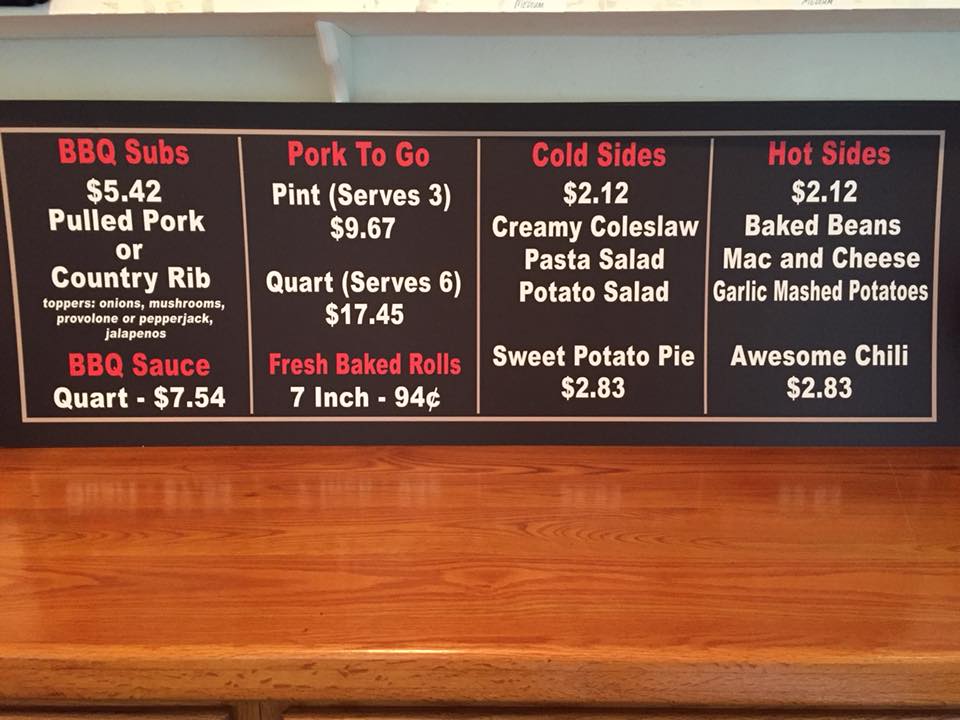 MEDIUM
MEDIUM
BBQ Subs
$5.42
Pulled Pork
or
Country Rib
toppers: onions, mushrooms,
provolone or pepperjack,
jalapenos
BBQ Sauce
Quart - $7.54
Pork To Go
Pint (Serves 3)
$9.67
Quart (Serves 6)
$17.45
Fresh Baked Rolls
7 Inch - 94¢
Cold Sides
$2.12
Creamy Coleslaw
Pasta Salad
Potato Salad
Sweet Potato Pie
$2.83
Hot Sides
$2.12
Baked Beans
Mac and Cheese
Garlic Mashed Potatoes
Awesome Chili
$2.83